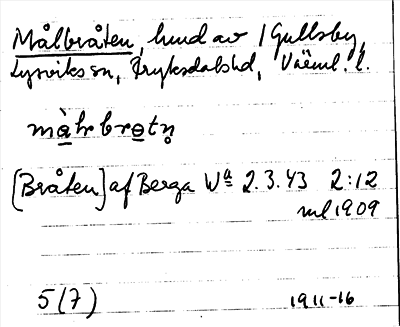 Målbråten, hmd av 1 Gullsby,
Lysviks sn, Fryksdals hd, Värml. l.
màhrbrotn̥
[Bråten] af Berga Wª 2.3.43 2:12
ml 1909
5(7) 1911-16